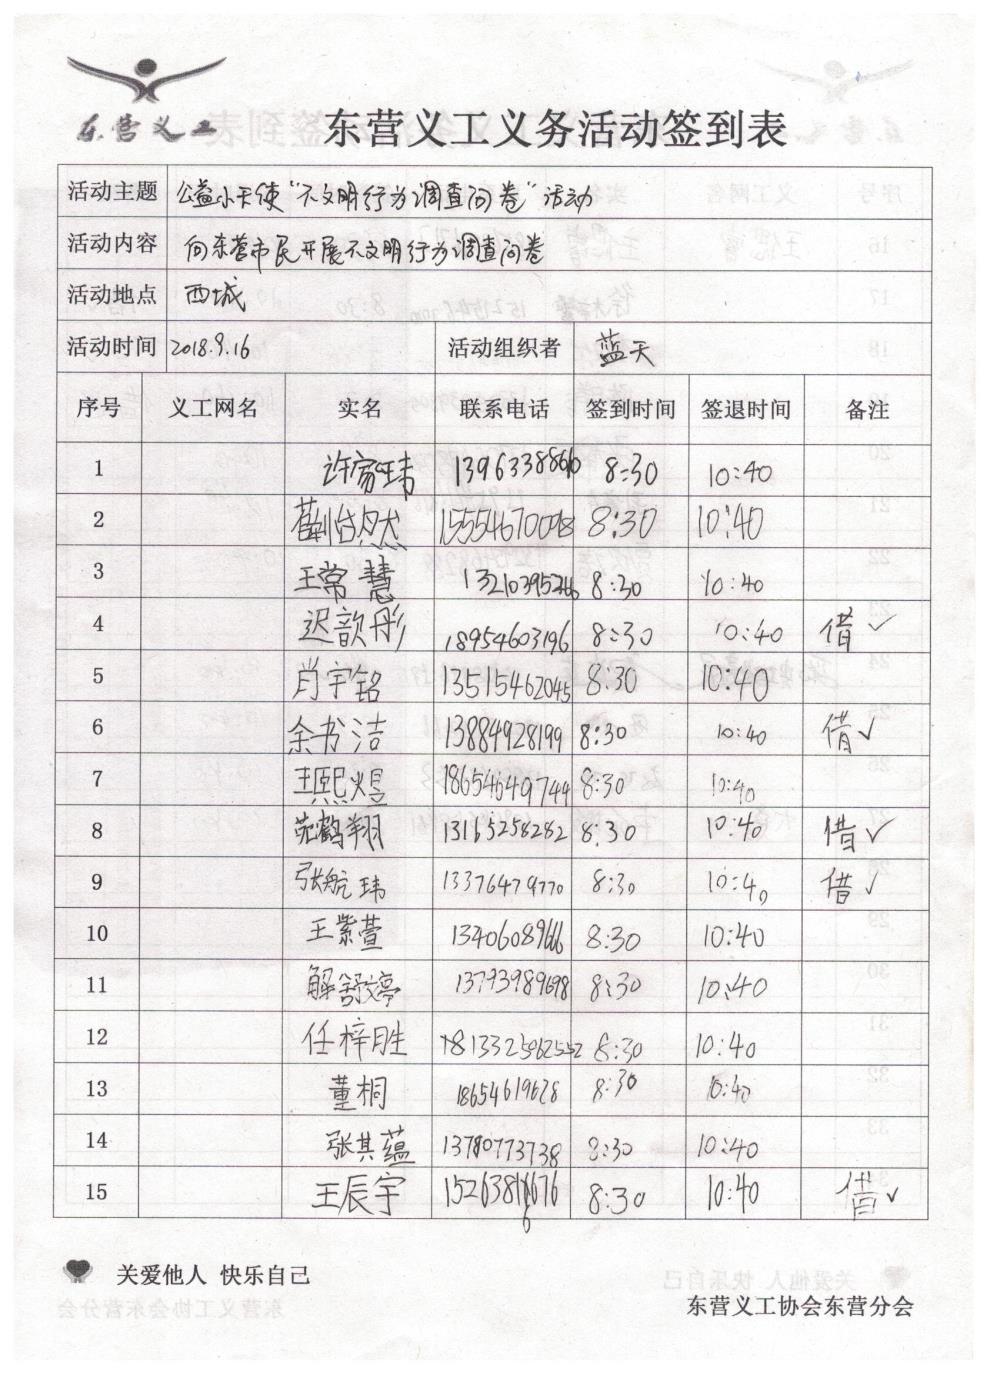 东营义工
东营义工义务活动签到表
活动主题 公益小天使"不文明行为调查问卷"活动
活动内容 向东营市民开展不文明行为调查问卷
活动地点 西城
活动时间 2018.9.16 活动组织者 蓝天
序号 义工网名 实名 联系电话 签到时间 签退时间 备注
1 许家玮 8:30 10:40
2 15554670098 8:30 10:40
3 王常慧 8:30 10:40
4 迟歆彤 18954603196 8:30 10:40 借✓
5 肖宇铭 13515462045 8:30 10:40
6 余书洁 13884928199 8:30 10:40 借✓
7 王熙煜 18654649744 8:30 10:40
8 苑鹤翔 13165258282 8:30 10:40 借✓
9 张航玮 13376479770 8:30 10:40 借✓
10 王紫萱 13406089666 8:30 10:40
11 解舒婷 13793989698 8:30 10:40
12 任梓胜 8:30 10:40
13 董桐 18654619628 8:30 10:40
14 张其蕴 13780773738 8:30 10:40
15 王辰宇 8:30 10:40 借✓
关爱他人 快乐自己
东营义工协会东营分会